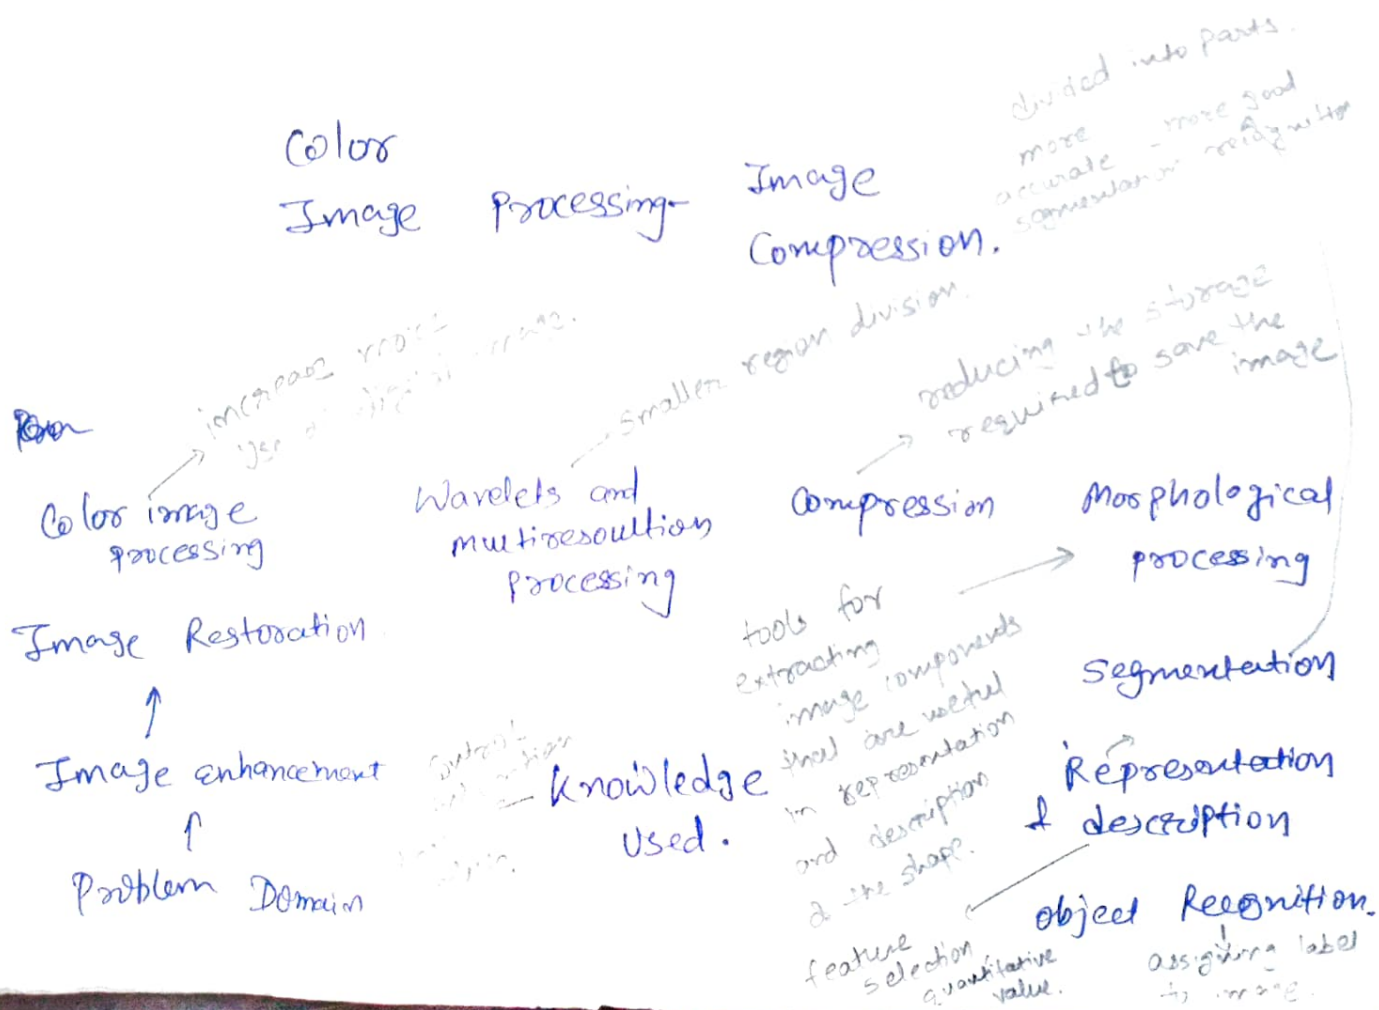 divided into parts.
more
accurate - more good
segmentation recognition
Color
Image Processing-
Image
Compression.
increase
use digital image.
smaller region division.
reducing the storage
required to save the
image
Color image
processing
Wavelets and
multiresoultion
processing
Compression
Morphological
processing
tools for
extracting
image components
that are useful
in representation
and description
the shape.
Image Restoration
Segmentation
Image enhancement
Knowledge
used.
Representation
& description
Problem Domain
object Recognition.
feature
selection
quantitative
value.
assigning label
to image.